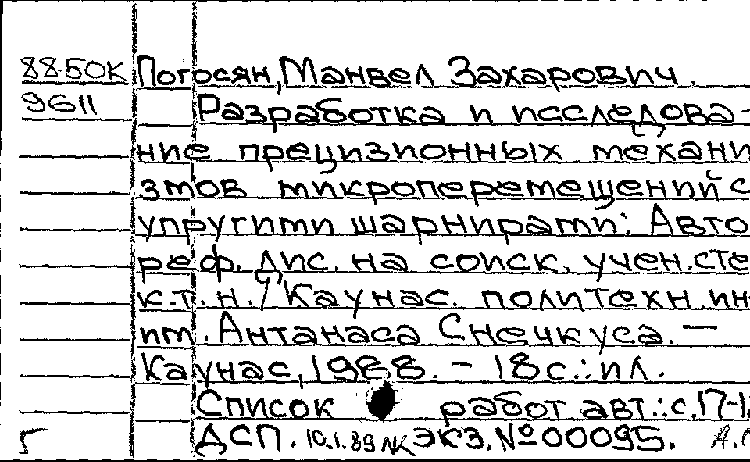 88-50K Погосян, Манвел Захарович.
9611 Разработка и исследова-
ние прецизионных механи
змов микроперемещений с
упругими шарнирами: Авто
реф. дис. на соиск. учен. сте
к.т.н. / Каунас. политехн. ин
им. Антанаса Снечкуса. —
Каунас, 1988. - 18 с.: ил.
Список работ авт.: с. 17-1
Г ДСП. 10.1.89 Экз. № 00095.